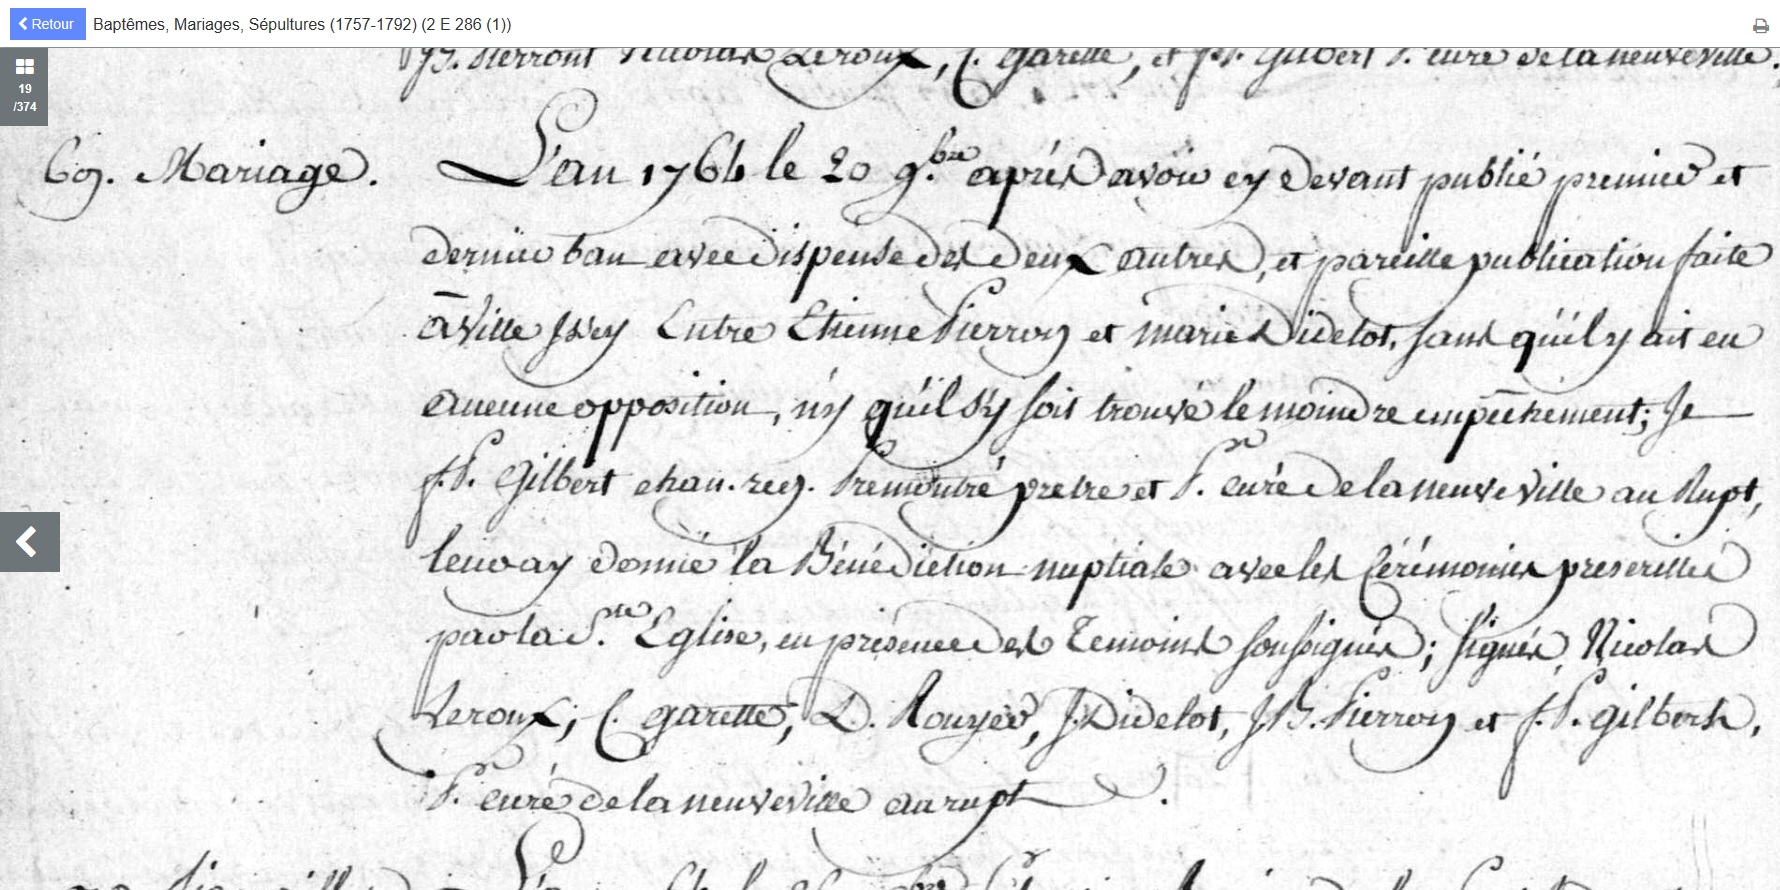 Retour Baptêmes, Mariages, Sépultures (1757-1792) (2 E 286 (1))
19
/374
J.B. Pierront Nicolas Leroux, C. garette, et f.P. Gilbert P. curé de la neuveville.
69. Mariage. L'an 1764 le 20 9.bre aprés avoir cy devant publié premier et
dernier ban avec dispense des deux autres, et pareille publication faite
a Ville Issey Entre Etienne Pierron et marie Didelot, sans qu'il y ait eu
aucune opposition, n'y qu'il s'y soit trouvé le moindre empéchement; Je
f.P. Gilbert chan. reg. Premontré pretre et P.r curé de la neuveville au Rupt,
leur ay donné la Bénédiction nuptiale avec les Cérémonies prescrittes
par la S.te Eglise, en présence des Temoins soussignés; signés, Nicolas
Leroux; C. garette, D. Rouyer, J. Didelot, J.B. Pierron et f.P. gilbert,
P. curé de la neuveville au rupt.
L'an